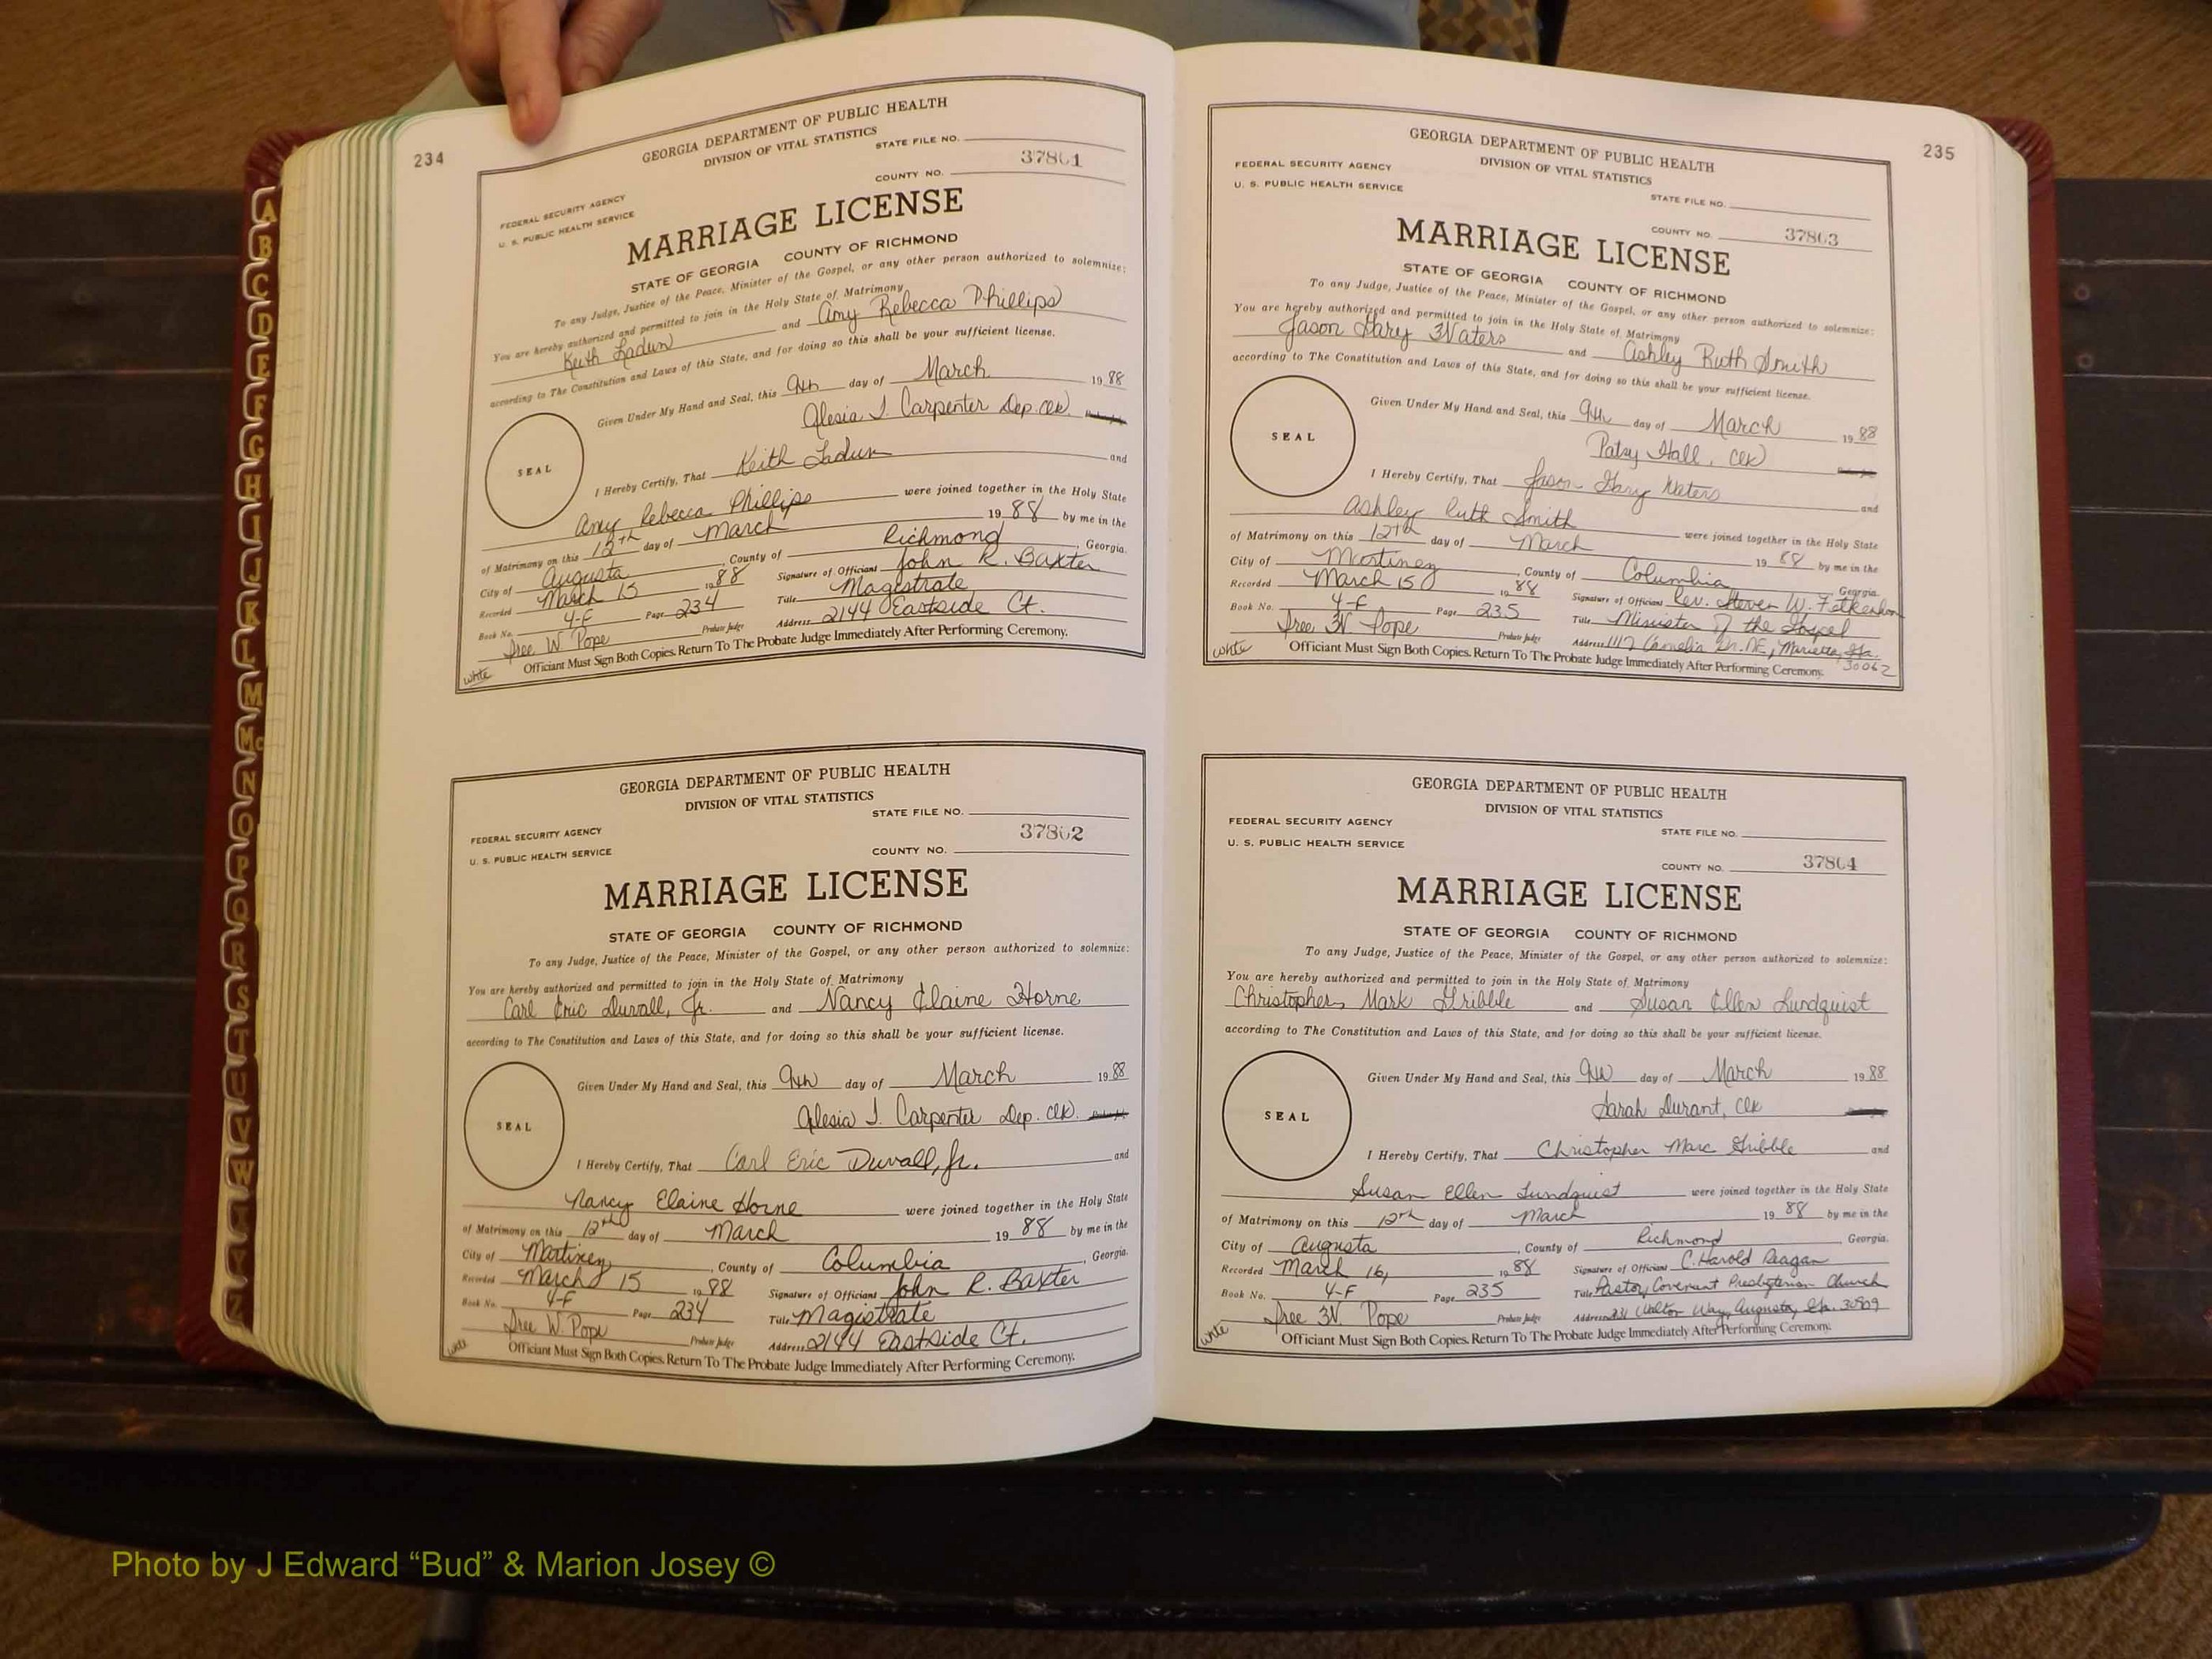 234
GEORGIA DEPARTMENT OF PUBLIC HEALTH
DIVISION OF VITAL STATISTICS
STATE FILE NO.
37801
COUNTY NO.
FEDERAL SECURITY AGENCY
U. S. PUBLIC HEALTH SERVICE
MARRIAGE LICENSE
STATE OF GEORGIA COUNTY OF RICHMOND
To any Judge, Justice of the Peace, Minister of the Gospel, or any other person authorized to solemnize:
You are hereby authorized and permitted to join in the Holy State of Matrimony
Keith Ladun and Amy Rebecca Phillips
according to The Constitution and Laws of this State, and for doing so this shall be your sufficient license.
Given Under My Hand and Seal, this 9th day of March 19 88
Alesia J. Carpenter Dep. Clk.
SEAL
I Hereby Certify, That Keith Ladun and
Amy Rebecca Phillips were joined together in the Holy State
of Matrimony on this 12th day of March 19 88 by me in the
City of Augusta, County of Richmond, Georgia.
Recorded March 15 19 88 Signature of Officiant John R. Baxter
Book No. 4-F Page 234 Title Magistrate
Dree W. Pope Probate Judge Address 2144 Eastside Ct.
Officiant Must Sign Both Copies. Return To The Probate Judge Immediately After Performing Ceremony.
white
GEORGIA DEPARTMENT OF PUBLIC HEALTH
DIVISION OF VITAL STATISTICS
STATE FILE NO.
FEDERAL SECURITY AGENCY
37802
U. S. PUBLIC HEALTH SERVICE
COUNTY NO.
MARRIAGE LICENSE
STATE OF GEORGIA COUNTY OF RICHMOND
To any Judge, Justice of the Peace, Minister of the Gospel, or any other person authorized to solemnize:
You are hereby authorized and permitted to join in the Holy State of Matrimony
Carl Eric Duvall, Jr. and Nancy Elaine Horne
according to The Constitution and Laws of this State, and for doing so this shall be your sufficient license.
Given Under My Hand and Seal, this 9th day of March 19 88
Alesia J. Carpenter Dep. Clk.
SEAL
I Hereby Certify, That Carl Eric Duvall, Jr. and
Nancy Elaine Horne were joined together in the Holy State
of Matrimony on this 12th day of March 19 88 by me in the
City of Martinez, County of Columbia, Georgia.
Recorded March 15 19 88 Signature of Officiant John R. Baxter
Book No. 4-F Page 234 Title Magistrate
Dree W. Pope Probate Judge Address 2144 Eastside Ct.
Officiant Must Sign Both Copies. Return To The Probate Judge Immediately After Performing Ceremony.
235
GEORGIA DEPARTMENT OF PUBLIC HEALTH
DIVISION OF VITAL STATISTICS
FEDERAL SECURITY AGENCY
U. S. PUBLIC HEALTH SERVICE
STATE FILE NO.
COUNTY NO. 37803
MARRIAGE LICENSE
STATE OF GEORGIA COUNTY OF RICHMOND
To any Judge, Justice of the Peace, Minister of the Gospel, or any other person authorized to solemnize:
You are hereby authorized and permitted to join in the Holy State of Matrimony
Jason Gary Waters and Ashley Ruth Smith
according to The Constitution and Laws of this State, and for doing so this shall be your sufficient license.
Given Under My Hand and Seal, this 9th day of March 19 88
Patsy Hall, Clk
SEAL
I Hereby Certify, That Jason Gary Waters and
Ashley Ruth Smith were joined together in the Holy State
of Matrimony on this 12th day of March 19 88 by me in the
City of Martinez, County of Columbia Georgia.
Recorded March 15 19 88 Signature of Officiant Rev. Steven W.
Book No. 4-F Page 235 Title Minister of the Gospel
Dree W. Pope Probate Judge Address 1112 Camelia Dr. NE, Marietta, Ga. 30062
Officiant Must Sign Both Copies. Return To The Probate Judge Immediately After Performing Ceremony.
white
GEORGIA DEPARTMENT OF PUBLIC HEALTH
DIVISION OF VITAL STATISTICS
FEDERAL SECURITY AGENCY
STATE FILE NO.
U. S. PUBLIC HEALTH SERVICE
COUNTY NO. 37804
MARRIAGE LICENSE
STATE OF GEORGIA COUNTY OF RICHMOND
To any Judge, Justice of the Peace, Minister of the Gospel, or any other person authorized to solemnize:
You are hereby authorized and permitted to join in the Holy State of Matrimony
Christopher Mark Gribble and Susan Ellen Lundquist
according to The Constitution and Laws of this State, and for doing so this shall be your sufficient license.
Given Under My Hand and Seal, this 9th day of March 19 88
Sarah Durant, Clk
SEAL
I Hereby Certify, That Christopher Marc Gribble and
Susan Ellen Lundquist were joined together in the Holy State
of Matrimony on this 12th day of March 19 88 by me in the
City of Augusta, County of Richmond Georgia.
Recorded March 16, 19 88 Signature of Officiant C. Harold Reagan
Book No. 4-F Page 235 Title Pastor, Covenant Presbyterian Church
Dree W. Pope Probate Judge Address Walton Way, Augusta, Ga. 30909
Officiant Must Sign Both Copies. Return To The Probate Judge Immediately After Performing Ceremony.
white
A
B
C
D
E
F
G
H
I
J
K
L
M
Mc
N
O
P
Q
R
S
T
U
V
W
X
Y
Z
Photo by J Edward “Bud” & Marion Josey ©